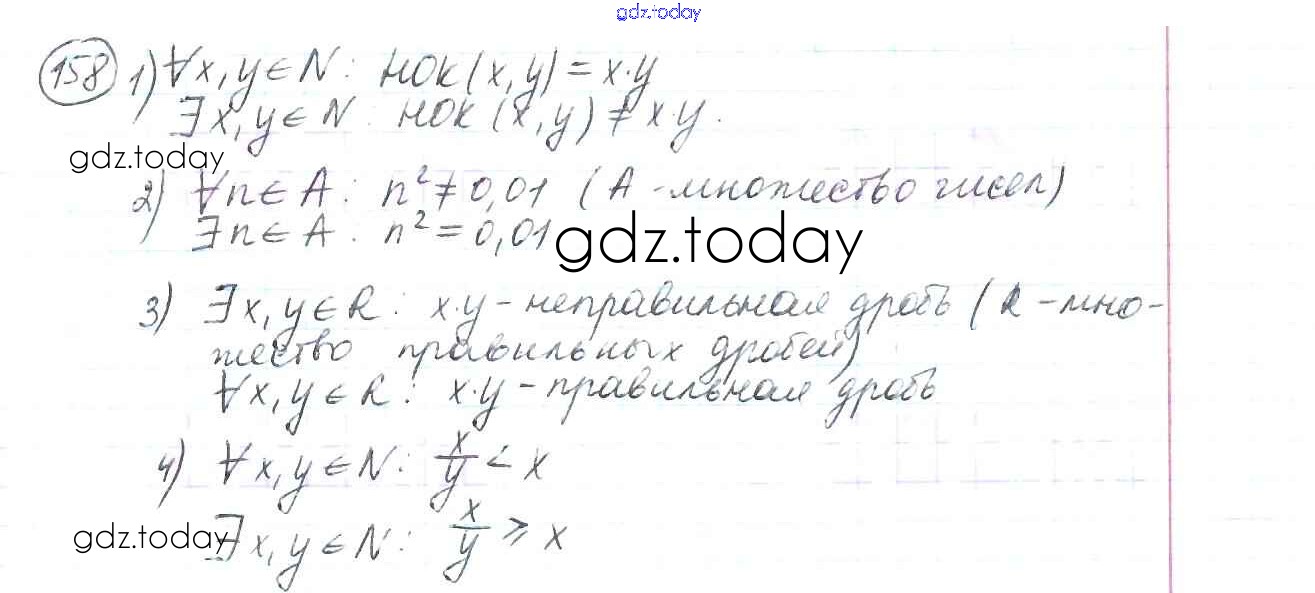 gdz.today
158 1) ∀x, y ∈ N: НОК(x, y) = x·y
∃x, y ∈ N: НОК(x, y) ≠ x·y.
gdz.today
2) ∀n ∈ A: n² ≠ 0,01 (A - множество чисел)
∃n ∈ A: n² = 0,01
gdz.today
3) ∃x, y ∈ R: x·y - неправильная дробь (R - мно-
жество правильных дробей)
∀x, y ∈ R: x·y - правильная дробь
4) ∀x, y ∈ N: x/y < x
gdz.today
∃x, y ∈ N: x/y ⩾ x